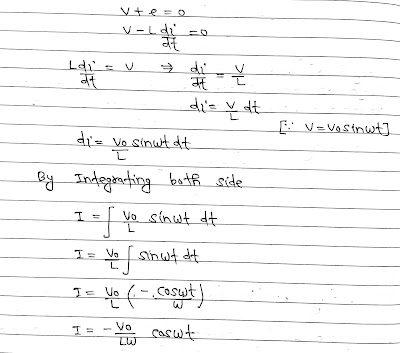 V + e = 0
V - L di/dt = 0
L di/dt = V ⇒ di/dt = V/L
di = V/L dt
[∵ V = Vo sinwt]
di = Vo/L sinwt dt
By Integrating both side
I = ∫ Vo/L sinwt dt
I = Vo/L ∫ sinwt dt
I = Vo/L (- coswt/w)
I = - Vo/LW coswt